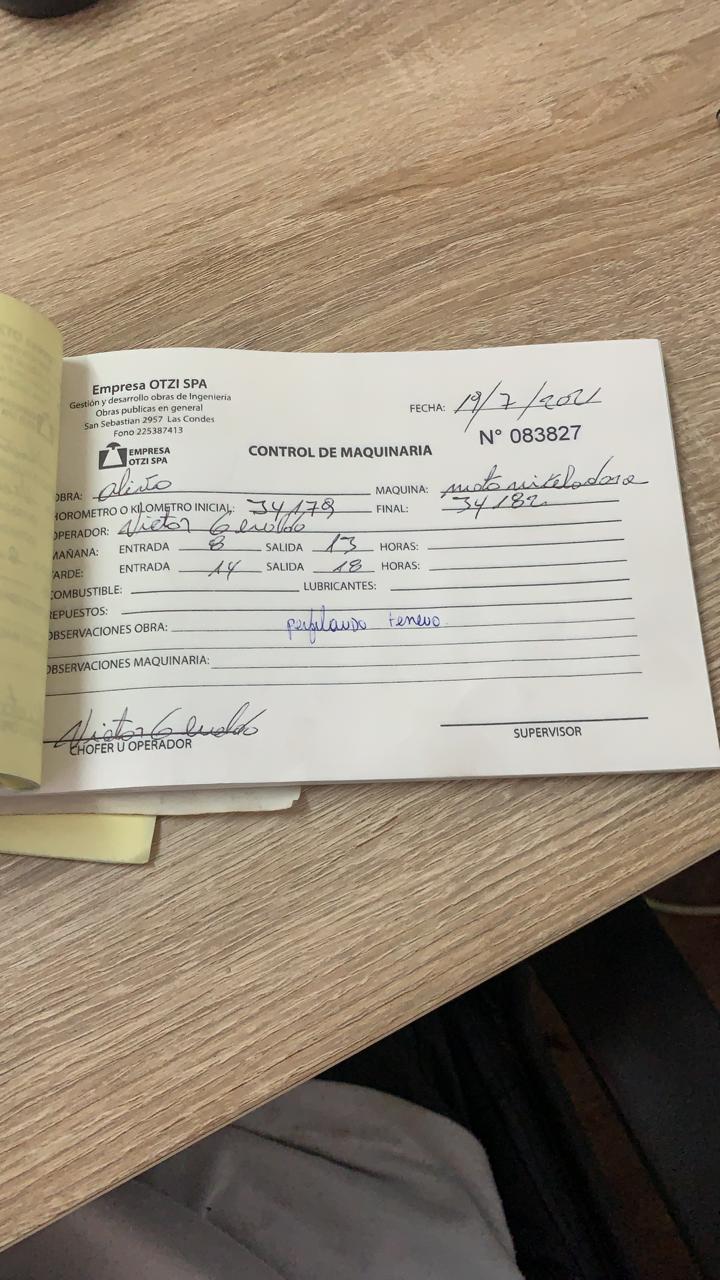 Empresa OTZI SPA
Gestión y desarrollo obras de Ingeniería
Obras publicas en general
San Sebastian 2957 Las Condes
Fono 225387413
EMPRESA
OTZI SPA
CONTROL DE MAQUINARIA
FECHA: 19/7/2021
N° 083827
OBRA: MAQUINA: moto niveladora
HOROMETRO O KILOMETRO INICIAL: 34178 FINAL: 34182
OPERADOR: Victor
MAÑANA: ENTRADA 8 SALIDA 13 HORAS:
TARDE: ENTRADA 14 SALIDA 18 HORAS:
COMBUSTIBLE: LUBRICANTES:
REPUESTOS:
OBSERVACIONES OBRA: perfilando
OBSERVACIONES MAQUINARIA:
Victor
CHOFER U OPERADOR
SUPERVISOR